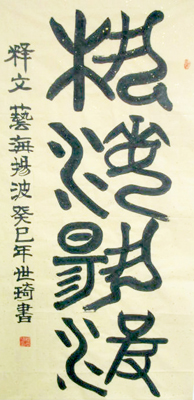 藝海揚波
释文 藝海揚波 癸巳年世琦書